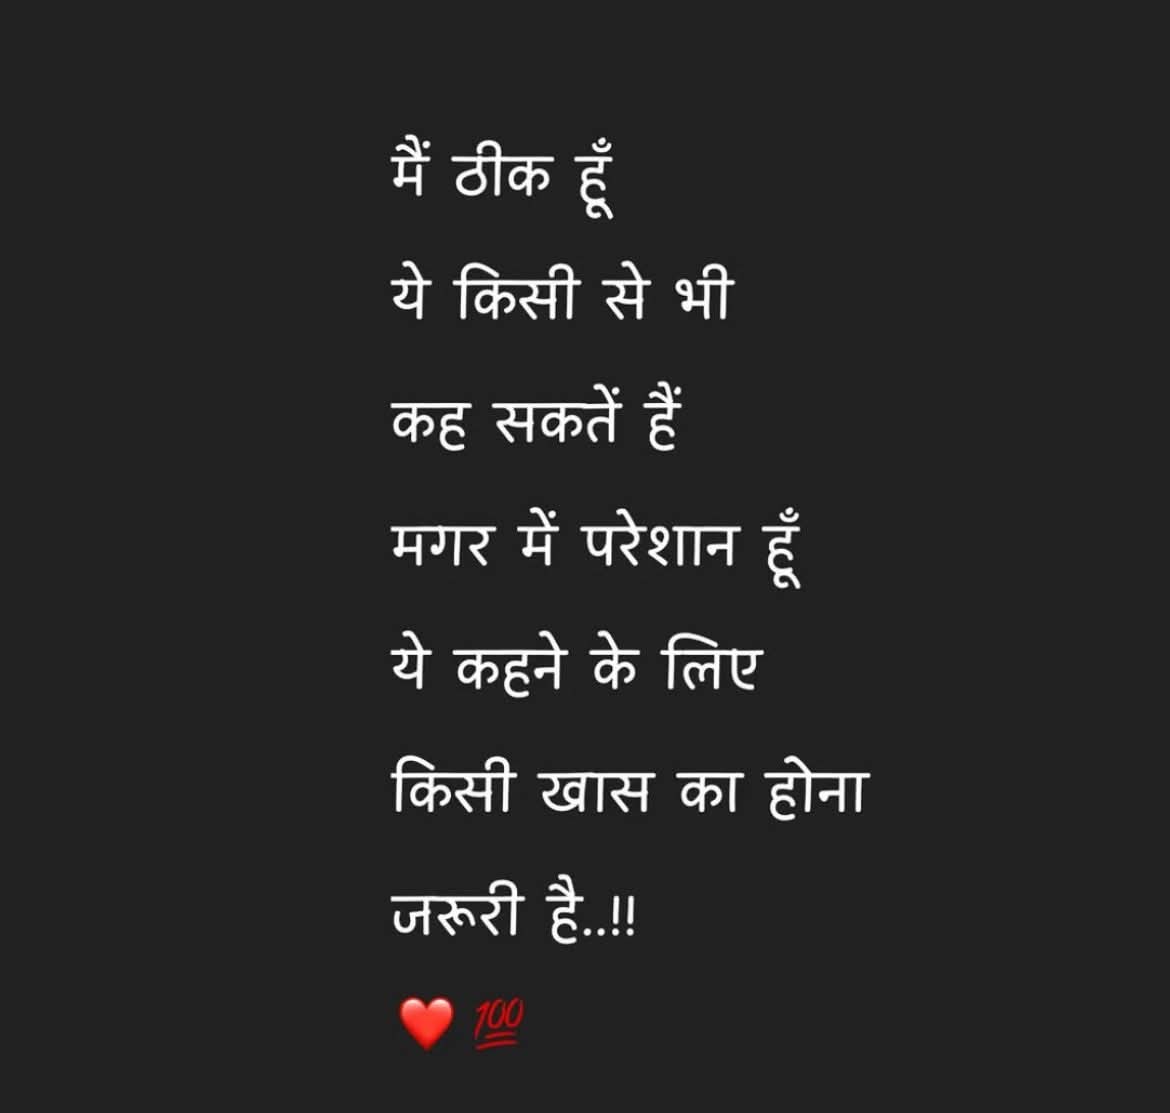 मैं ठीक हूँ
ये किसी से भी
कह सकतें हैं
मगर में परेशान हूँ
ये कहने के लिए
किसी खास का होना
जरूरी है..!!
❤️ 💯